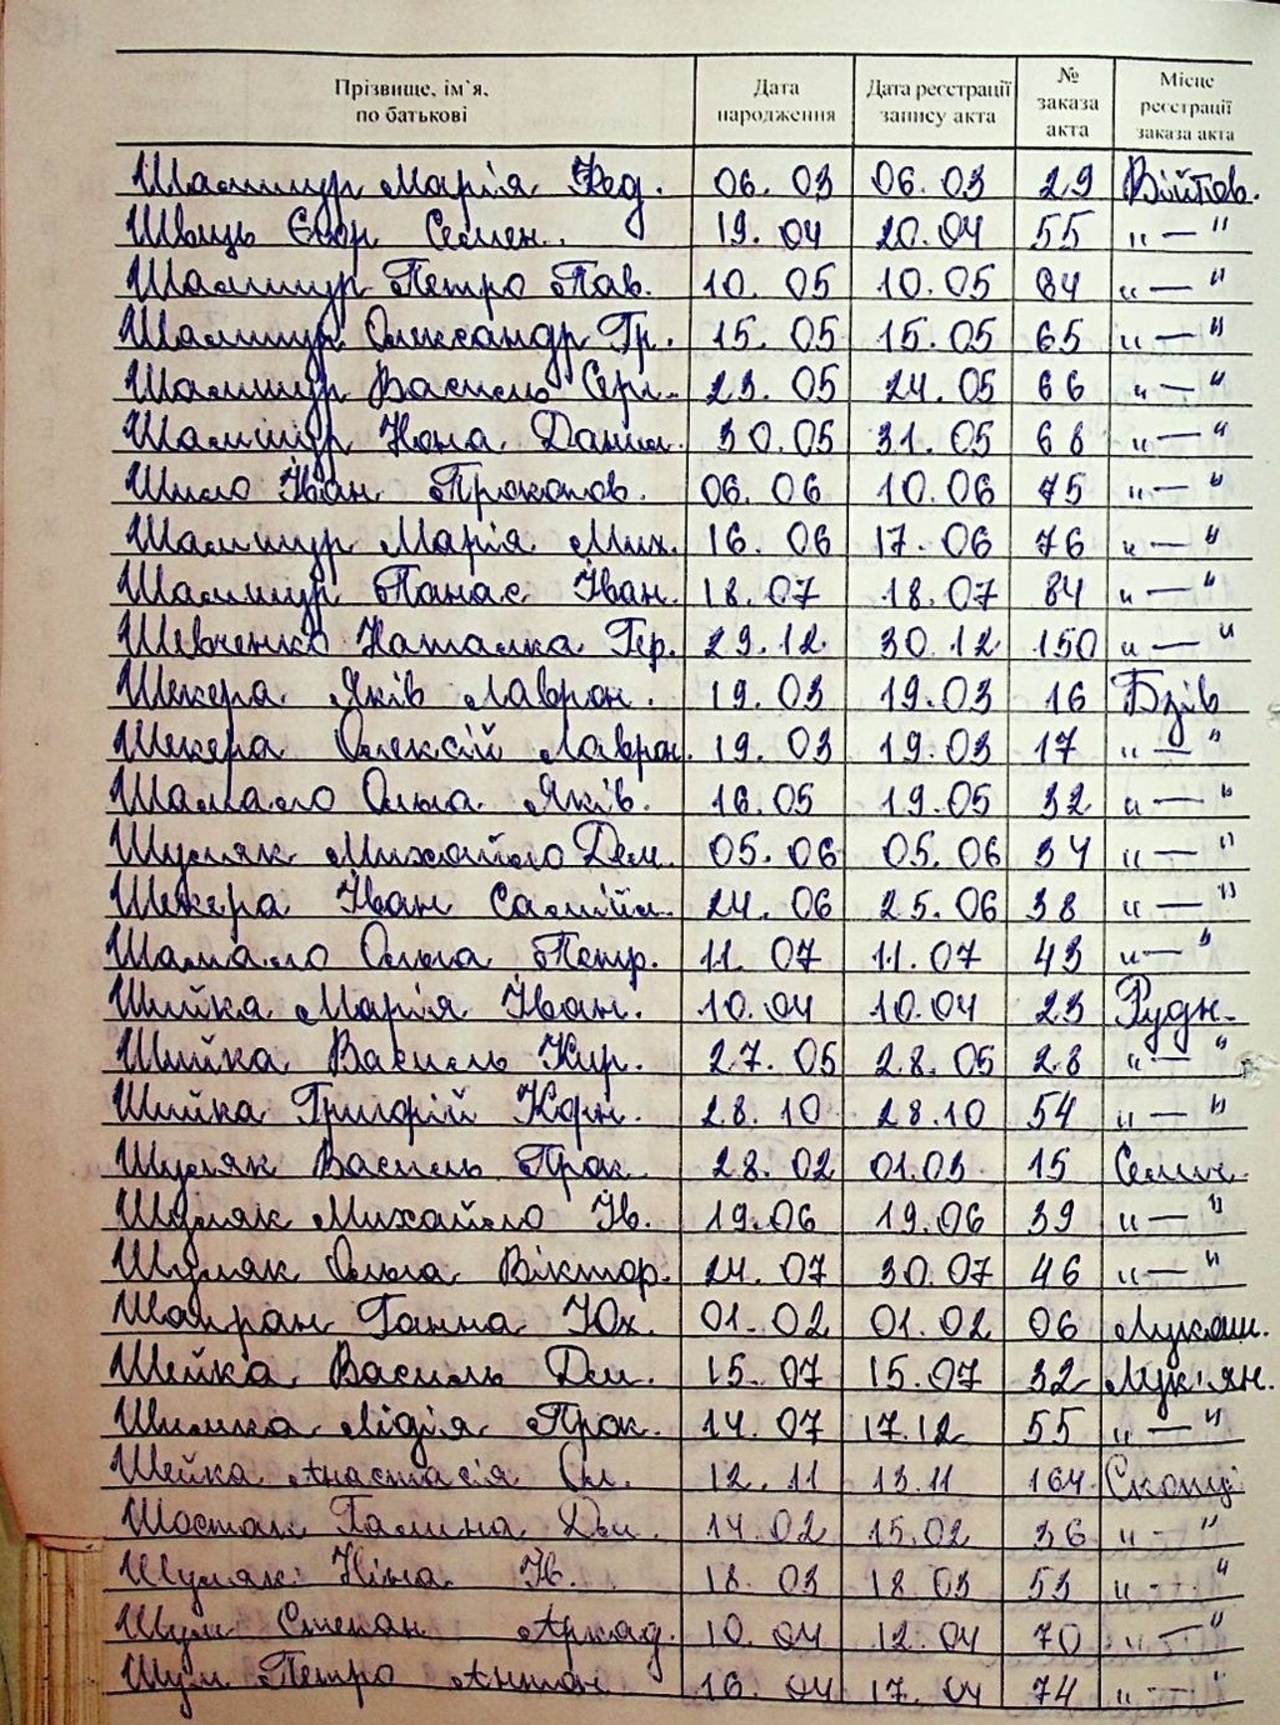 Прізвище, ім`я, по батькові Дата народження Дата реєстрації запису акта № заказа акта Місце реєстрації заказа акта
Шалишур Марія Фед. 06. 03 06. 03 29 Війтов.
Швиць Єгор Семен. 19. 04 20. 04 55 "—"
Шалишур Петро Пав. 10. 05 10. 05 64 "—"
Шалишур Олександр Гр. 15. 05 15. 05 65 "—"
Шалишур Василь Сер. 23. 05 24. 05 66 "—"
Шалишур Нона Данил. 30. 05 31. 05 68 "—"
Шило Іван Прокопов. 06. 06 10. 06 75 "—"
Шалишур Марія Мих. 16. 06 17. 06 76 "—"
Шалишур Панас Іван. 18. 07 18. 07 84 "—"
Шевченко Наталка Гер. 29. 12. 30. 12 150 "—"
Шекера Яків Лаврон. 19. 03 19. 03 16 Бзів
Шекера Олексій Лаврон. 19. 03 19. 03 17 "—"
Шамало Ольга Яків. 16. 05 19. 05 32 "—"
Шуляк Михайло Дем. 05. 06 05. 06 34 "—"
Шекера Іван Самійл. 24. 06 25. 06 38 "—"
Шамало Ольга Петр. 11. 07 11. 07 43 "—"
Шийка Марія Іван. 10. 04 10. 04 23 Рудн.
Шийка Василь Кир. 27. 05 28. 05 28 "—"
Шийка Григорій Корн. 28. 10 28. 10 54 "—"
Шуляк Василь Прок. 28. 02 01. 03 15 Селич.
Шуляк Михайло Ів. 19. 06 19. 06 39 "—"
Шуляк Ольга Віктор. 24. 07 30. 07 46 "—"
Шапран Ганна Юх. 01. 02 01. 02 06 Лукаш.
Шейка Василь Дм. 15. 07 15. 07 32 Лук'ян.
Шилка Лідія Прок. 14. 07 17. 12 55 "—"
Шейка Анастасія Ол. 12. 11 13. 11 164 Скопці
Шостак Галина Дм. 14. 02 15. 02 36 "—"
Шуляк Ніна Ів. 18. 03 18. 03 53 "—"
Шум Степан Аркад. 10. 04 12. 04 70 "—"
Шум Петро Антон 16. 04 17. 04 74 "—"